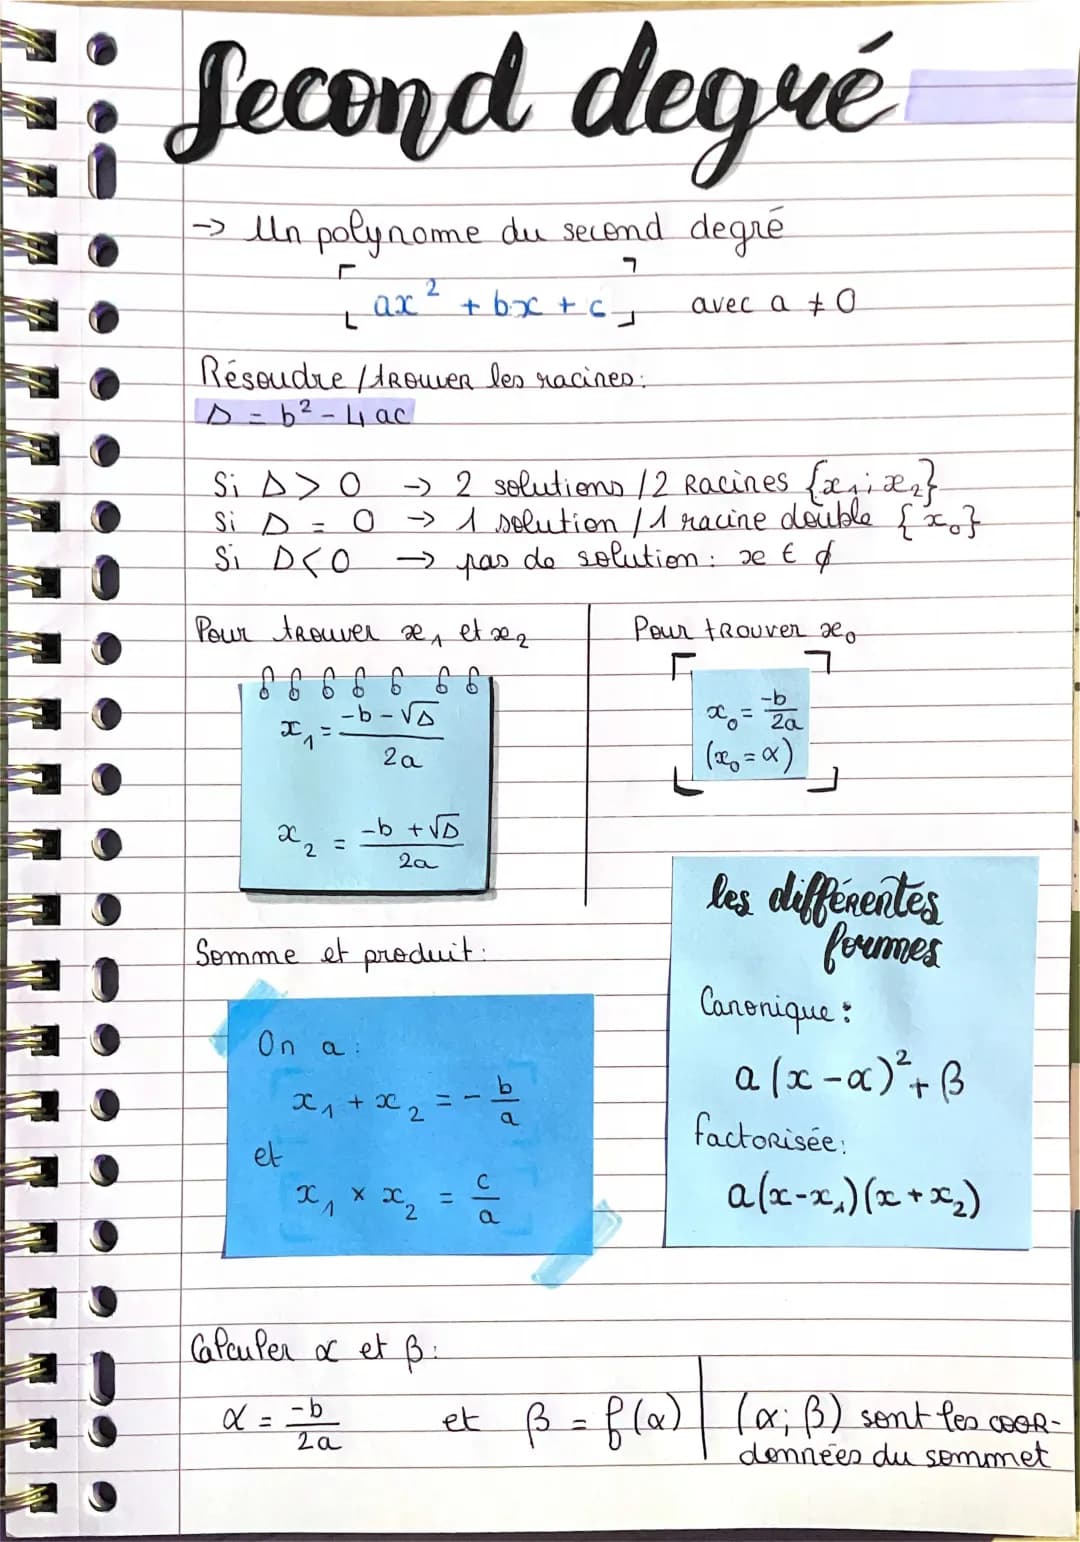 Second degré
→ Un polynome du second degré
ax² + bx + c avec a ≠ 0
Résoudre / trouver les racines :
Δ = b² - 4ac
Si Δ > 0 → 2 solutions / 2 Racines {x₁ ; x₂}
Si Δ = 0 → 1 solution / 1 racine double {x₀}
Si Δ < 0 → pas de solution : x ∈ ∅
Pour trouver x₁ et x₂
x₁ = (-b - √Δ) / 2a
x₂ = (-b + √Δ) / 2a
Pour trouver x₀
x₀ = -b / 2a
(x₀ = α)
Somme et produit :
On a :
x₁ + x₂ = - b/a
et
x₁ × x₂ = c/a
les différentes
formes
Canonique :
a(x - α)² + β
factorisée :
a(x - x₁)(x + x₂)
Calculer α et β :
α = -b / 2a et β = f(α)
(α ; β) sont les coor-
données du sommet